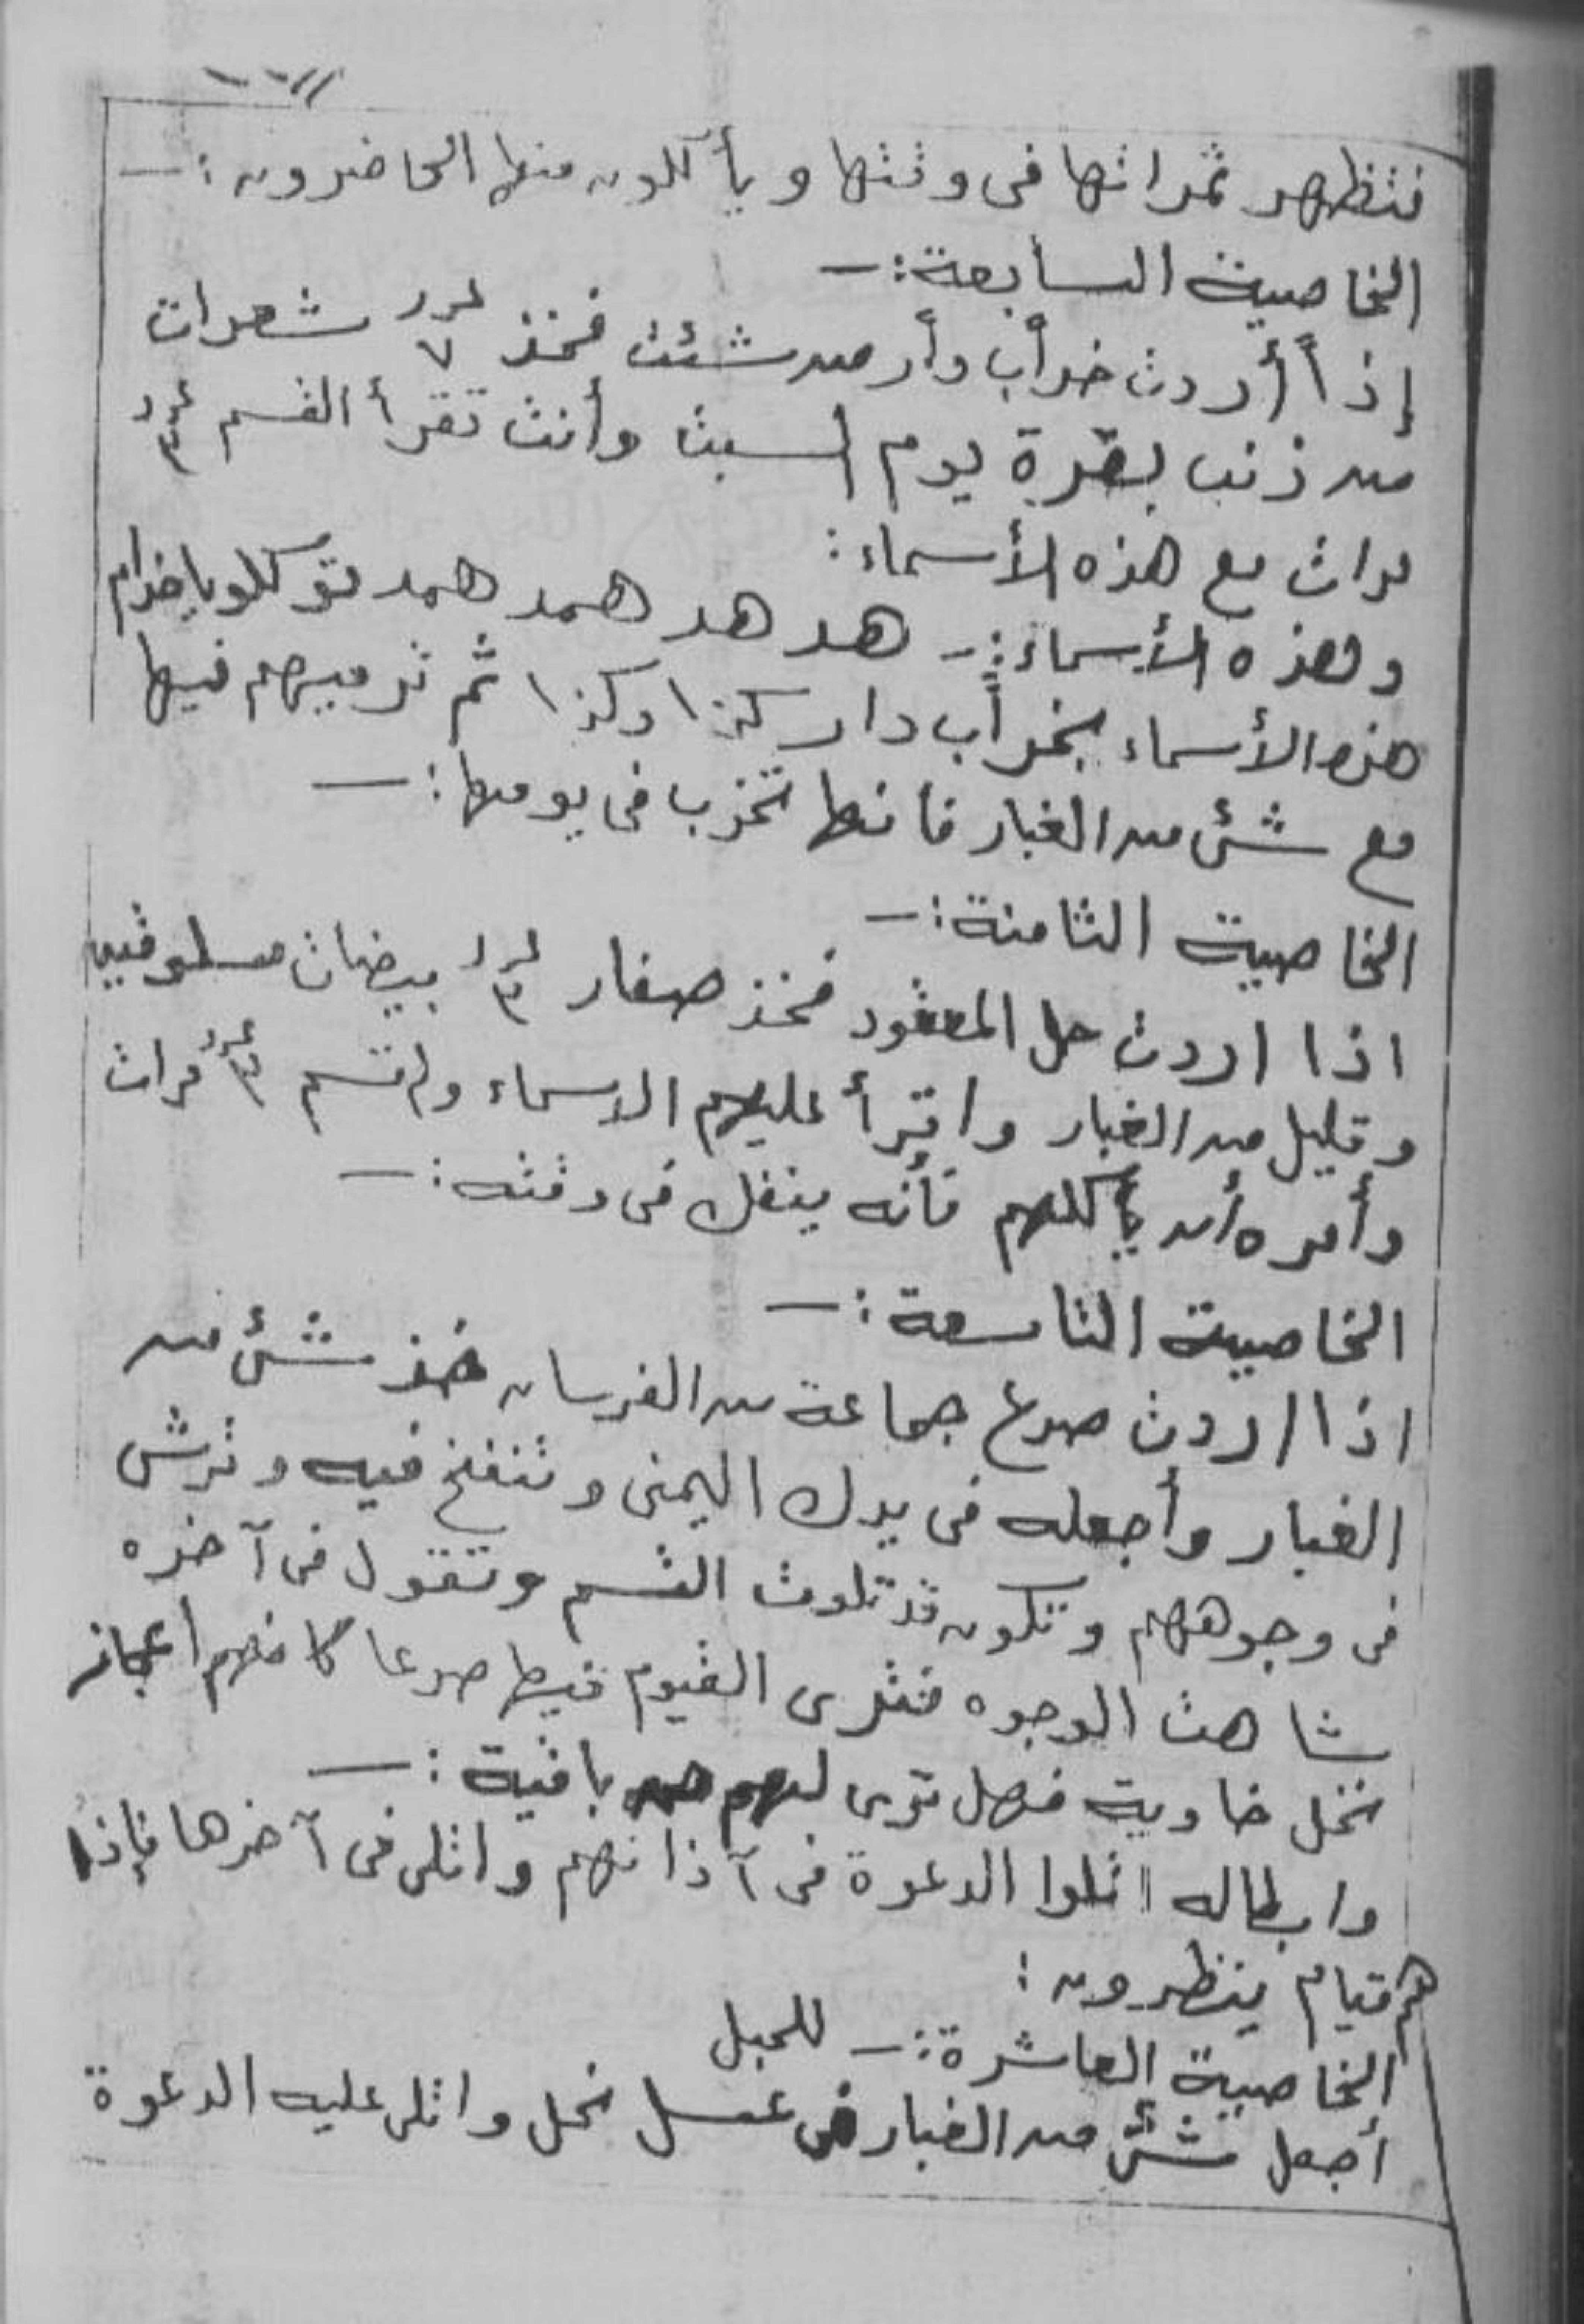 فتظهر ثمراتها في وقتها ويأكلون منها الحاضرون :ـ
الخاصية السابعة :ـ
إذاً أردت خراب دار من شئت فخذ عدد ٧ شعرات
من ذنب بقرة يوم السبت وأنت تقرأ القسم عدد ٣
مرات مع هذه الأسماء :
وهذه الأسماء :ـ هد هد همد همد توكلو ياخدام
هذه الأسماء بخراب دار كذا وكذا ثم ترميهم فيها
مع شئ من الغبار فانها تخرب في يومها :ـ
الخاصية الثامنة :ـ
اذا اردت حل المعقود فخذ صفار عدد ٣ بيضات مسلوقين
وقليل من الغبار واقرأ عليهم الاسماء والقسم عدد ٣ مرات
وأمره أن يأكلهم فأنه ينفك في وقته :ـ
الخاصية التاسعة :ـ
اذا اردت صرع جماعة من الفرسان خذ شئ من
الغبار وأجعله في يدك اليمنى وتنفخ فيه وترش
في وجوههم وتكون قد تلوت القسم وتقول في آخره
شاهت الوجوه فترى القيوم فيها صرعا كانهم أعجاز
نخل خاوية فهل ترى لهم من باقية :ـ
وابطاله اتلوا الدعوة في آذانهم واتلى في آخرها فإذا
هم قيام ينظرون :
الخاصية العاشرة :ـ للحبل
أجعل شئ من الغبار في عسل نحل واتلى عليه الدعوة